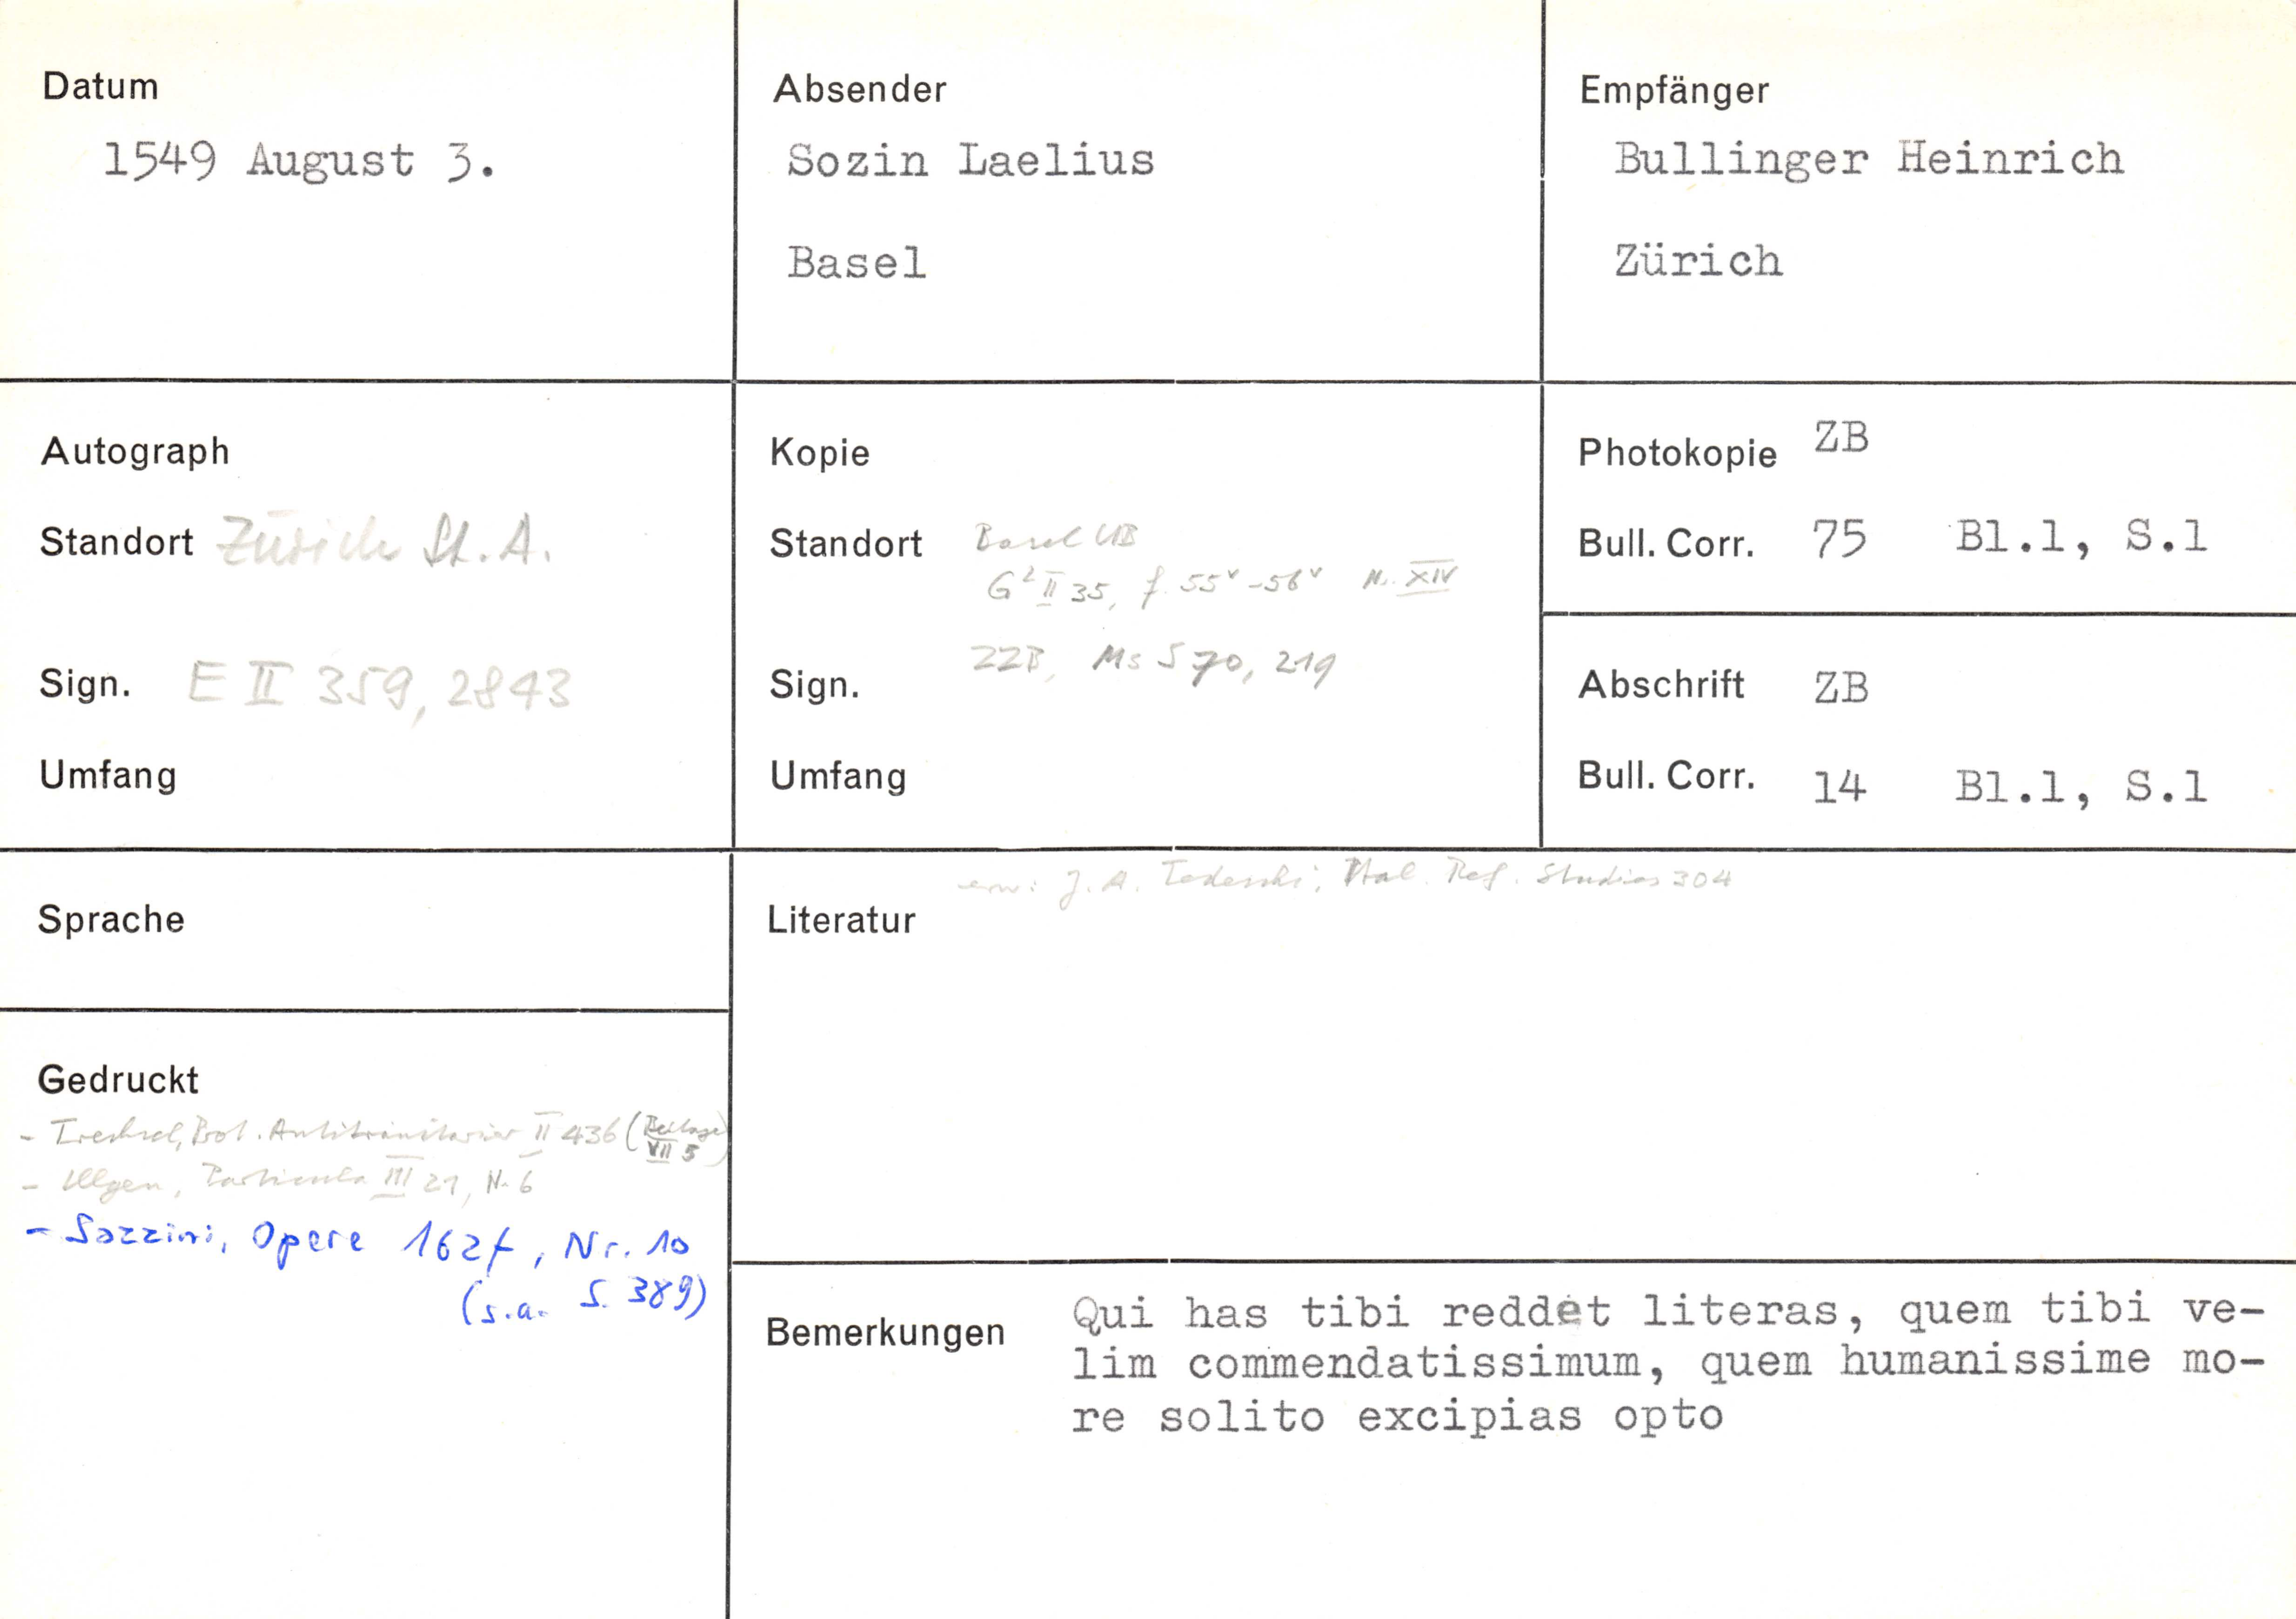 Datum
1549 August 3.
Absender
Sozin Laelius
Basel
Empfänger
Bullinger Heinrich
Zürich
Autograph
Standort Zürich St.A.
Sign. E II 359, 2843
Umfang
Kopie
Standort Basel UB
G² II 35, f. 55v-56v N. XIV
Sign. ZZB, Ms S 70, 219
Umfang
Photokopie ZB
Bull. Corr. 75 Bl.1, S.1
Abschrift ZB
Bull. Corr. 14 Bl.1, S.1
Sprache
Literatur
erw: J. A. Tedeschi, Ital. Ref. Studies 304
Gedruckt
- Trechsel, Prot. Antitrinitarier II 436 (Beilage
VII 5)
- Illgen, Particula III 21, N. 6
- Sozzini, Opere 162f, Nr. 10
(s.a. S. 389)
Bemerkungen
Qui has tibi reddet literas, quem tibi ve-
lim commendatissimum, quem humanissime mo-
re solito excipias opto